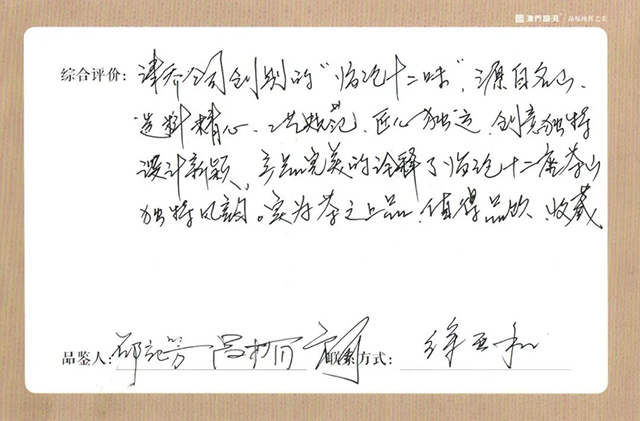 津乔普洱 品味纯粹之美
综合评价：津乔公司创制的“临沧十二味”，源自名山、
选料精心、工艺规范、匠心独运、创意独特
设计新颖，产品完美的诠释了临沧十二座茶山
独特风韵。实为茶之上品，值得品饮、收藏
品鉴人： 联系方式： 徐亚和